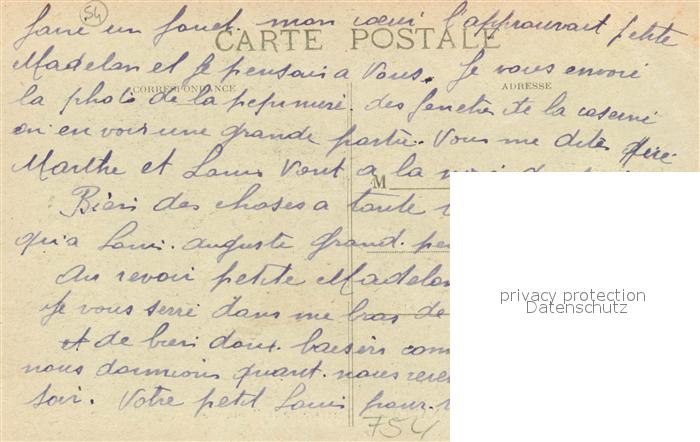 54
faire un jouet. mon cœur l'approuvait petite
CARTE POSTALE
Madelon et Je pensais a Vous. Je vous envoie
CORRESPONDANCE
ADRESSE
la photo de la pepiniere. des fenetres de la caserne
on en voit une grande partie. Vous me dites
Marthe et Louis Vont a la
M
Bien des choses a toute
qu'a Louis. auguste Grand.
Au revoir petite Madelon
Je vous serre dans me bras de
et de bien doux. baisers
nous donnions quant. nous
soir. Votre petit Louis pour.
754
privacy protection
Datenschutz